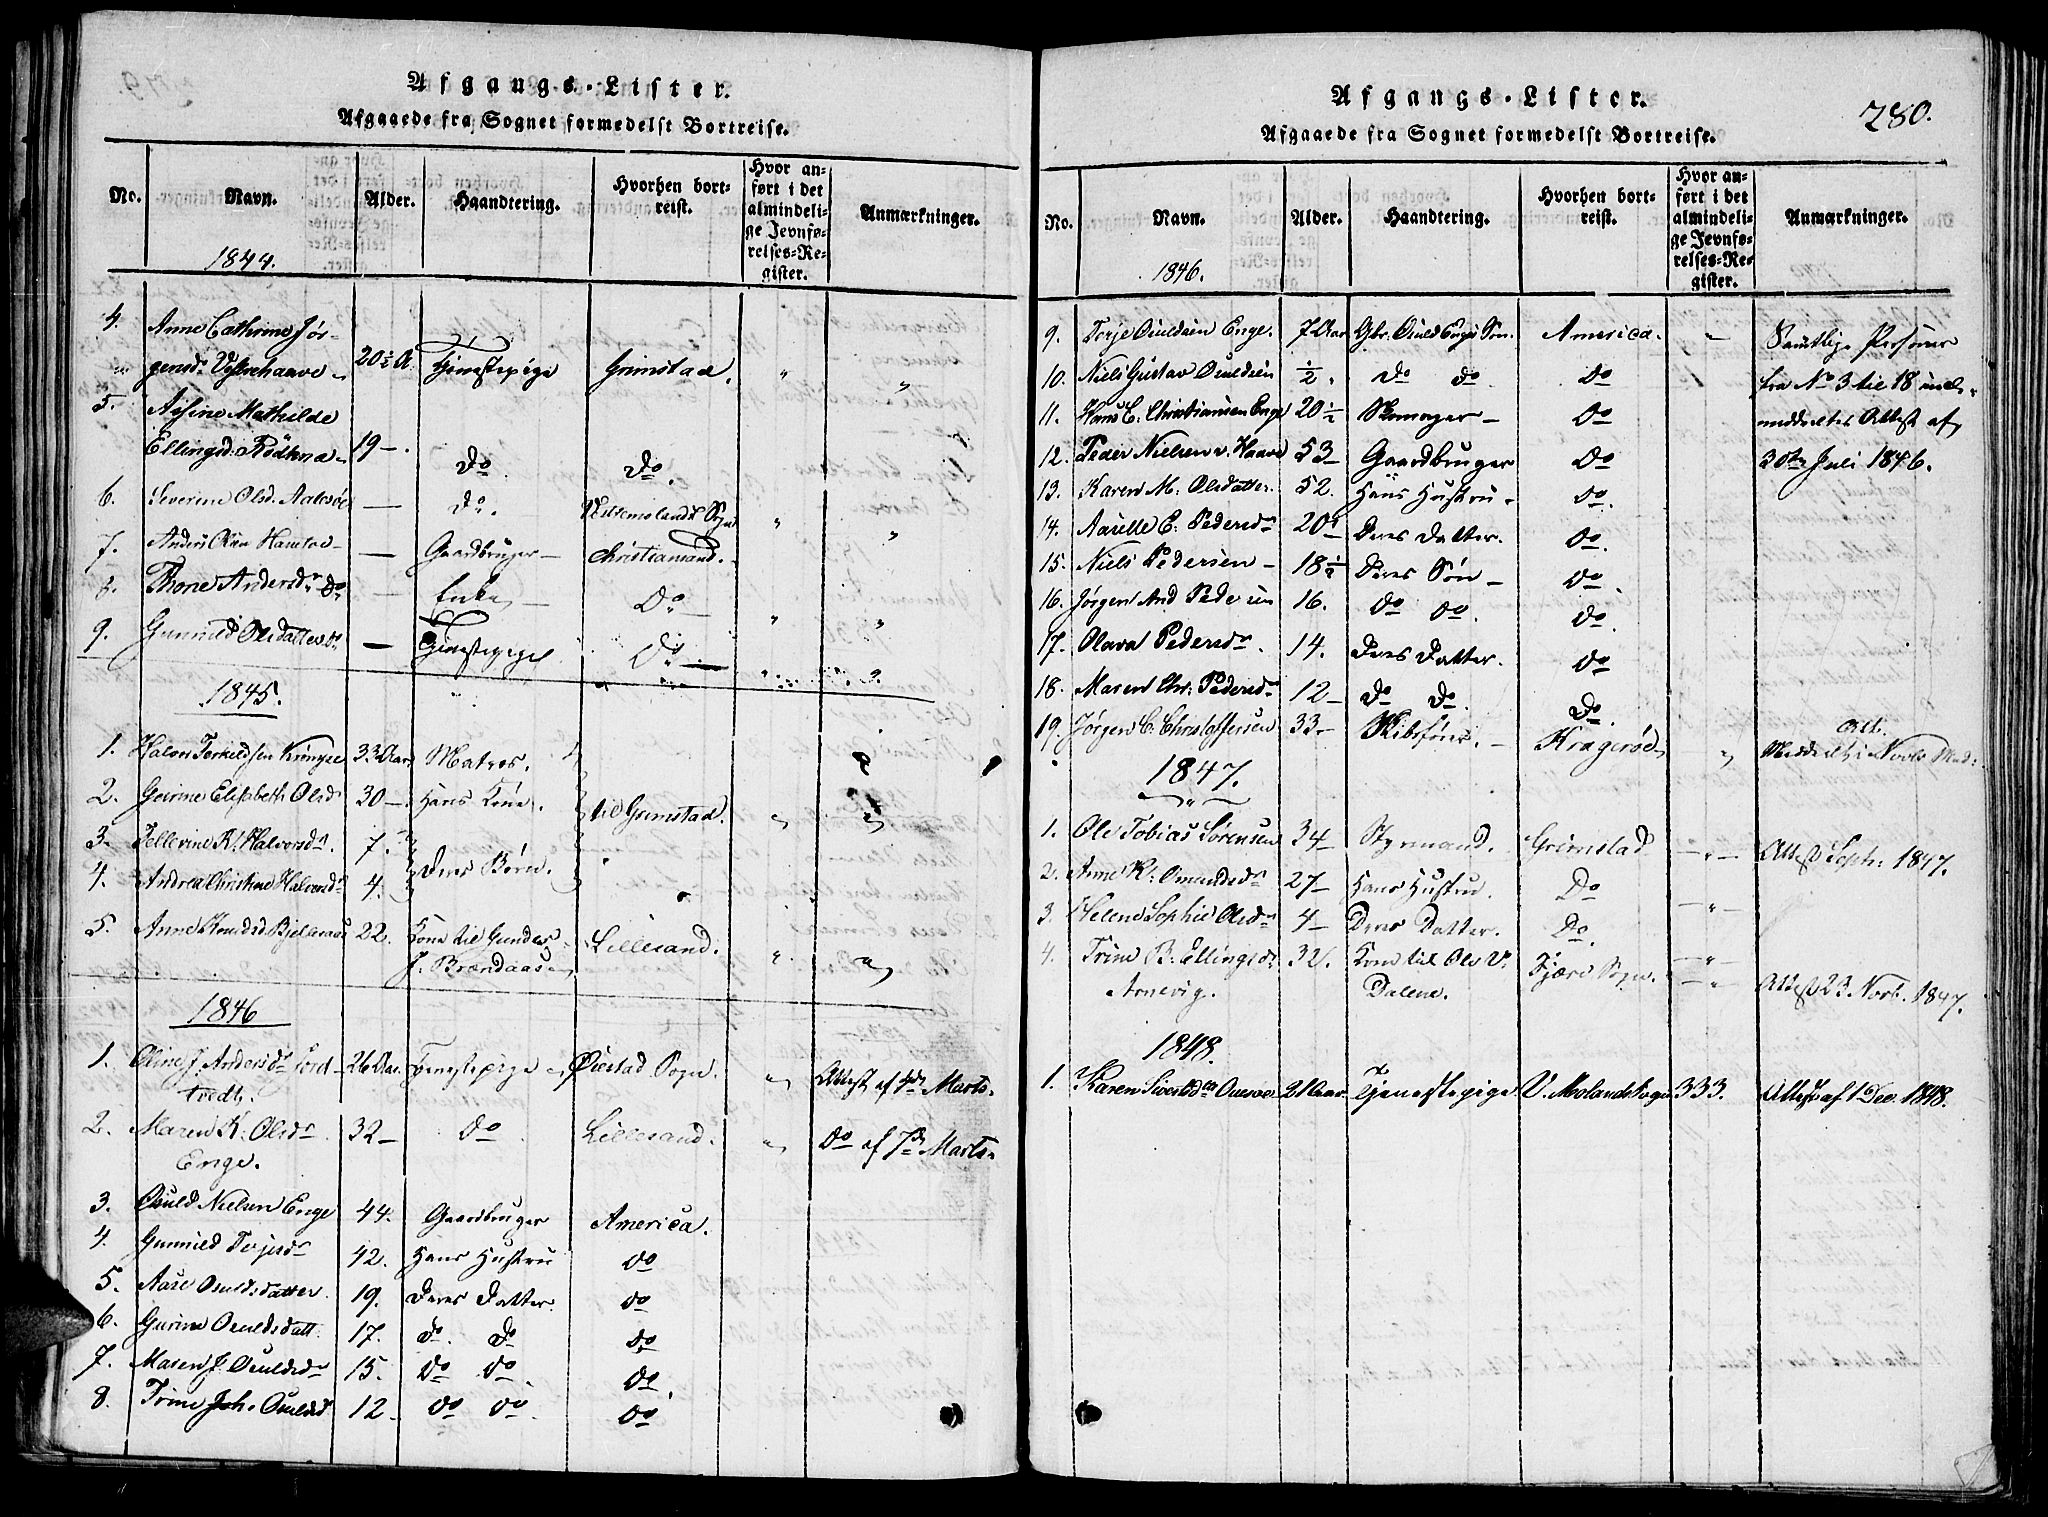 Afgangs-Lister.
Afgaaede fra Sognet formedelst Bortreise.
No. Navn. Alder. Haandtering. Hvorhen bortreist. Hvor anført i det almindelige Jevnførelses-Register. Anmærkninger.
1844.
4. Anne Cathrine Jør-
gensd: 20½ A Tjenestepige Grimstad. " "
5. Mathilde
Ellingsd: 19 -. Do Do.
6. Severine Olsd. — Do. Sogn " "
7. Anders — Gaardbruger — Christiansand.
8. Thone Andersdr Do — Enke — Do — " "
9. Gunnild Olsdatter Do — Tjenestepige Do — " "
1845.
1. 33 Aar Matros.
2. Elisabeth Olsd 30 -. Hans Kone. til Grimstad. " "
3. Halvorsdr. 7. Deres Børn.
4. Andrea Christine Halvorsdr 4.
5. Anne 22. Kone til Gunder Lillesand. " "
J. Brændaas
1846
1. Oline J. Andersdr 26 Aar. Tjenestepige Øiestad Sogn. " Attest af Marts.
tvedt.
2. Maren K. Olsdr 32 — Do Lillesand. " Do af 7de Marts.
Enge.
3. Osuld Nielsen Enge 44. Gaardbruger America.
4. Gunnild Terjesdr 42. Hans Hustru Do
5. Aase Osuldsdatter. 19. Deres Datter. Do
6. Gurine Osuldsdatt. 17. Do. Do Do
7. Maren J. Osuldsdr 15. Do Do. Do.
8. Trine Joh. Osuldsd 12 - Do Do. Do
Afgangs-Lister. 280.
Afgaaede fra Sognet formedelst Bortreise.
No. Navn. Alder. Haandtering. Hvorhen bortreist. Hvor anført i det almindelige Jevnførelses-Register. Anmærkninger.
1846.
9. Terje Osuldsen Enge. 7 Aar Gbr. Osuld Enges Søn. America. " Samtlige Personer
10. Niels Gustav Osuldsen ½. Do Do. Do fra No 3 til 18 incl.
11. Hans C. Christiansen Enge 20½ Skomager — Do meddeelt Attest af
12. Peder Nielsen v. Haave 53 — Gaardbruger Do 30te Juli 1846.
13. Karen M. Olsdatter. 52. Hans Hustru. Do.
14. E. Pedersdr 20 Deres Datter. Do.
15. Niels Pedersen — 18½ Deres Søn — Do.
16. Jørgen And Pedersen 16. Do Do. Do.
17. Olava Pedersdr. 14. Deres Datter. Do
18. Maren Chr. Pedersdr 12 — Do Do. Do.
19. Jørgen C. Christoffersen 33 - Skibsfører. — Kragerøe " Att.
Meddeelt i
1847.
1. Ole Tobias Sørensen 34 — Styrmand. Grimstad — " — Attest Septr. 1847.
2. Anne K. Omundsdr 27 — Hans Hustru. Do — " —
3. Helene Sophie Olsdr 4 — Deres Datter. Do.
4. Trine B. Ellingsdr 32. Kone til Ole Fjære Sogn. — " —
Arnevig. Dalene. Attest 23 Novb. 1847.
1848.
1. Karen 21 Aar Tjenestepige V. Molands Sogn 333. Attest af 1 Dec. 1848.